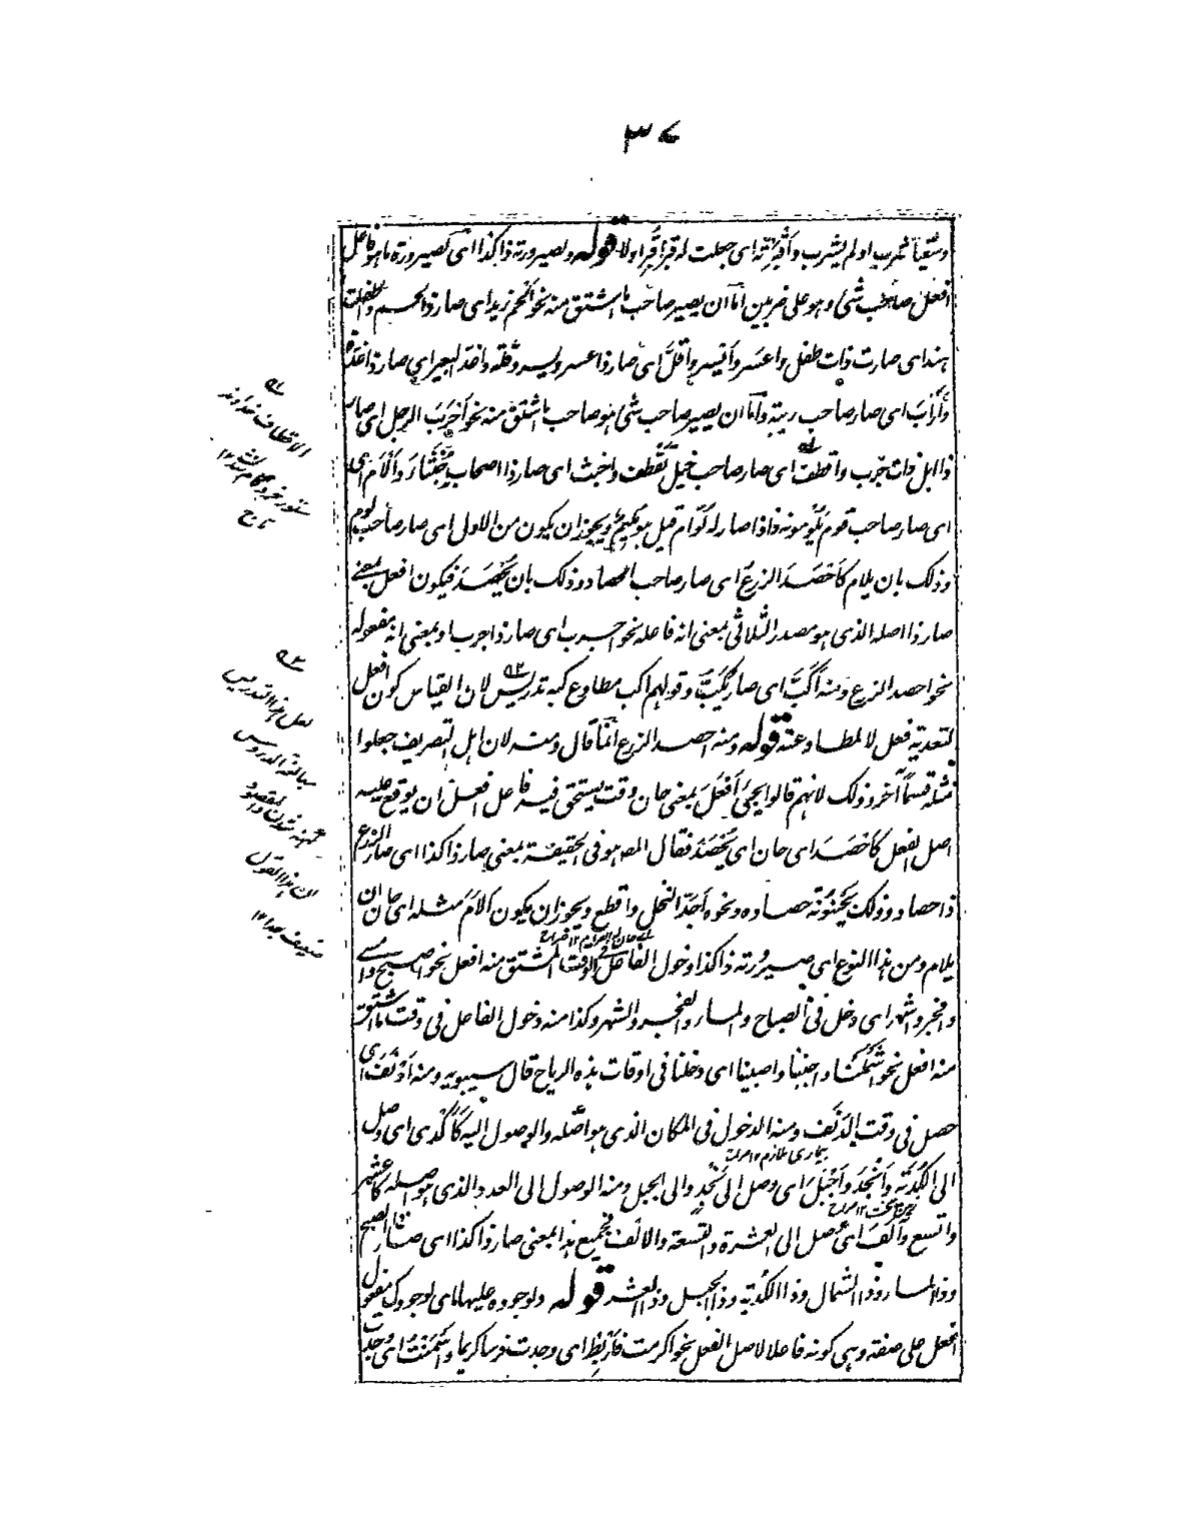 ٣٧
وسُقياً لشرب او لم يشرب وأقبرته اى جعلت له قبرا قُبِر اولا قوله ولصيرورة ذا كذا اى لصيرورة ما هو فاعل
افعل صاحب شئ وهو على ضربين امّا ان يصير صاحب ما اشتق منه نحو الحم زيد اى صار ذا لحم واطفلت
هند اى صارت ذات طفل واعسَر وأيسر وأقلّ اى صار ذا عسر ويسر وقلّة واغدّ البعير اى صار ذا غدّة
وأراب اى صار صاحب ريبة وامّا ان يصير صاحب شئ هو صاحب ما اشتق منه نحو أجرَبَ الرجل اى صار
ذا ابل ذات جرب واقطف اى صار صاحب خيل تقطف واخبث اى صار ذا اصحاب خبثاء وألام
اى صار صاحب قوم يلومونه فاذا صار له لوّام قيل هو مُليم ويجوز ان يكون من الاول اى صار صاحب لوم
وذلك بان يلام كأحصَدَ الزرع اى صار صاحب الحصاد وذلك بان يُحصَد فيكون افعل بمعنى
صار ذا اصله الذى هو مصدر الثلاثى بمعنى انه فاعله نحو اجرب اى صار ذا جرب او بمعنى انه مفعوله
نحو احصد الزرع ومنه أكبّ اى صار يُكَبّ وقولهم اكب مطاوع كبه تدريس لان القياس كون افعل
لتعدية فعل لا لمطاوعته قوله ومنه احصد الزرع انما قال ومنه لان اهل التصريف جعلوا
مثله قسماً آخر وذلك لانهم قالوا يجئ أفعَلَ بمعنى حان وقت يستحق فيه فاعل افعل ان يوقع عليه
اصل الفعل كأحصَدَ اى حان اى يُحصَد فقال المصه هو فى الحقيقة بمعنى صار ذا كذا اى صار الزرع
ذا حصاد وذلك بحينونة حصاده ونحوه أجدّ النخل واقطع ويجوز ان يكون ألامَ مثله اى حان ان
يلام ومن هذا النوع اى صيرورته ذا كذا دخول الفاعل فى الوقت المشتق منه افعل نحو اصبح وامسى
وافجر واشهر اى دخل فى الصباح والمساء والفجر والشهر وكذا منه دخول الفاعل فى وقت ما اشتق
منه افعل نحو اشملنا واجنبنا واصبينا اى دخلنا فى اوقات هذه الرياح قال سيبويه ومنه ادنف اى
حصل فى وقت الدنف ومنه الدخول فى المكان الذى هو اصله والوصول اليه كأكدى اى وصل
الى الكُدْيَة وأنجَدَ وأجبَل اى وصل الى نجد والى الجبل ومنه الوصول الى العدد الذى هو اصله كأعشر
واتسع وآلف اى وصل الى العشرة والتسعة والالف فجميع هذا بمعنى صار ذا كذا اى صار ذا الصبح
وذا المساء وذا الشمال وذا الكدية وذا الجبل وذا العشرة قوله ولوجوده عليها اى لوجودك مفعول
افعل على صفة وهى كونه فاعلا لاصل الفعل نحو اكرمت فاربط اى وجدت فرسا كريما واسمنت اى وجدت
الاقطاف خداوند
ستور
تاج
لعل هذا التدريس
مبالغة الدروس
ان هذا القول
ضعيف جدا ١٢